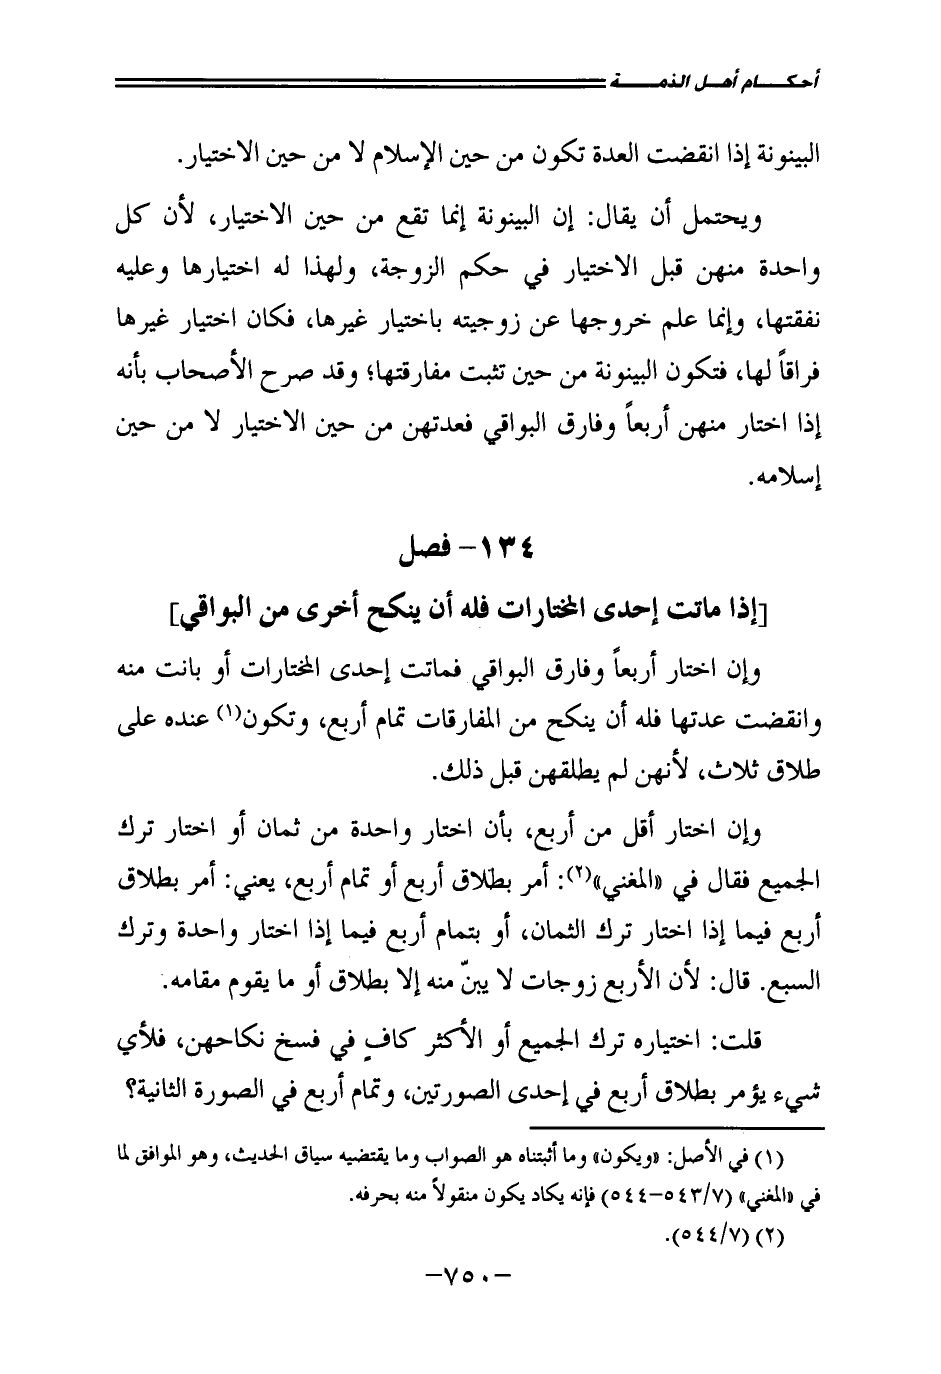 أحكــــام أهـــل الذمـــــة
البينونة إذا انقضت العدة تكون من حين الإسلام لا من حين الاختيار.
ويحتمل أن يقال: إن البينونة إنما تقع من حين الاختيار، لأن كل
واحدة منهن قبل الاختيار في حكم الزوجة، ولهذا له اختيارها وعليه
نفقتها، وإنما علم خروجها عن زوجيته باختيار غيرها، فكان اختيار غيرها
فراقاً لها، فتكون البينونة من حين تثبت مفارقتها؛ وقد صرح الأصحاب بأنه
إذا اختار منهن أربعاً وفارق البواقي فعدتهن من حين الاختيار لا من حين
إسلامه.
١٣٤- فصل
[إذا ماتت إحدى المختارات فله أن ينكح أخرى من البواقي]
وإن اختار أربعاً وفارق البواقي فماتت إحدى المختارات أو بانت منه
وانقضت عدتها فله أن ينكح من المفارقات تمام أربع، وتكون(١) عنده على
طلاق ثلاث، لأنهن لم يطلقهن قبل ذلك.
وإن اختار أقل من أربع، بأن اختار واحدة من ثمان أو اختار ترك
الجميع فقال في «المغني»(٢): أمر بطلاق أربع أو تمام أربع، يعني: أمر بطلاق
أربع فيما إذا اختار ترك الثمان، أو بتمام أربع فيما إذا اختار واحدة وترك
السبع. قال: لأن الأربع زوجات لا يبنّ منه إلا بطلاق أو ما يقوم مقامه.
قلت: اختياره ترك الجميع أو الأكثر كافٍ في فسخ نكاحهن، فلأي
شيء يؤمر بطلاق أربع في إحدى الصورتين، وتمام أربع في الصورة الثانية؟
(١) في الأصل: «ويكون» وما أثبتناه هو الصواب وما يقتضيه سياق الحديث، وهو الموافق لما
في «المغني» (٥٤٣/٧-٥٤٤) فإنه يكاد يكون منقولاً منه بحرفه.
(٢) (٥٤٤/٧).
-٧٥٠-